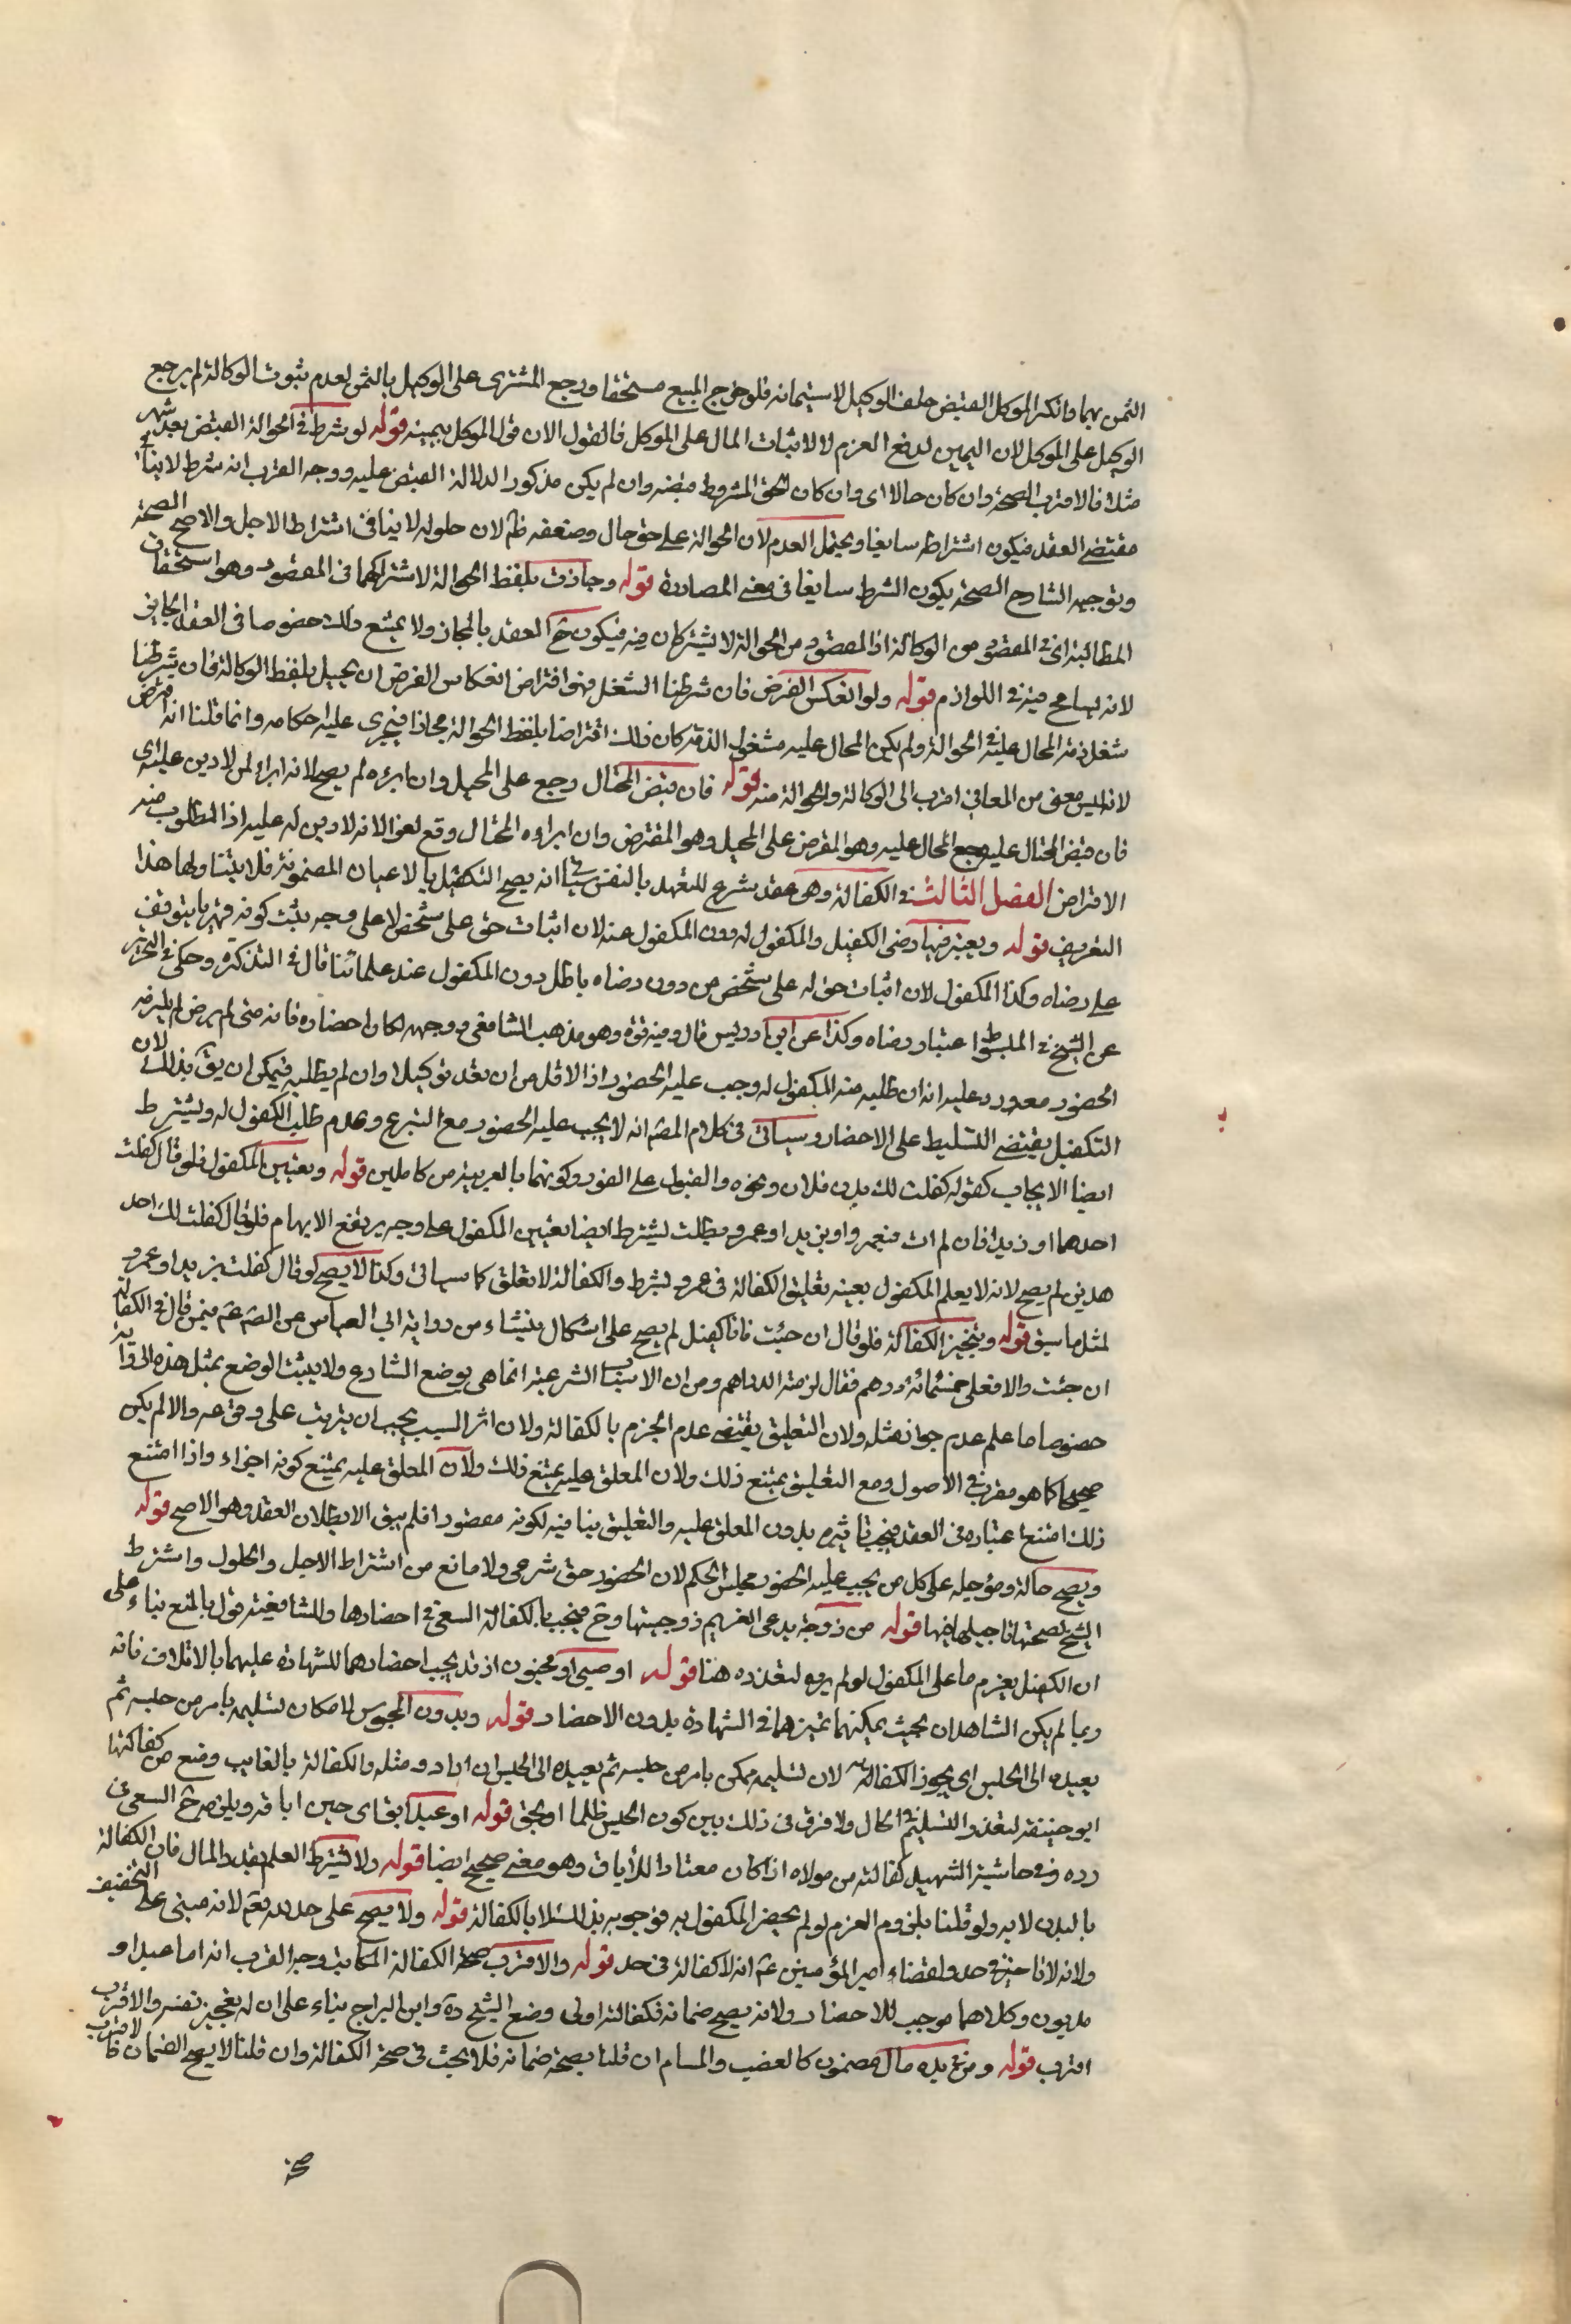 الثمن بهما وانكر الموكل القبض حلف الوكيل لاستيمانه فلو خرج المبيع مستحقا ورجع المشترى على الوكيل بالثمن لعدم ثبوت الوكالة لم يرجع
الوكيل على الموكل لان اليمين لدفع الغرم لا لاثبات المال على الموكل فالقول الان قول الموكل بيمينه قوله لو شرط فى الحوالة القبض بعد شهر
مثلا فالاقرب الصحة وان كان حالا اى وان كان الحق المشروط قبضه وان لم يكن مذكورا لدلالة القبض عليه ووجه القرب انه شرط لا ينافى
مقتضى العقد فيكون اشتراطه سايغا ويحتمل العدم لان الحوالة على حق حال وضعفه ظ لان حلوله لا ينافى اشتراط الاجل والاصح الصحة
وتوجيه الشارح الصحة بكون الشرط سايغا فى معنى المصادرة قوله وجازت بلفظ الحوالة لاشتراكهما فى المقصود وهو استحقاق
المطالبة اى فى المقصود من الوكالة اذ المقصود من الحوالة لا يشتركان فيه فيكون ح العقد بالمجاز ولا يمتنع ذلك خصوصا فى العقد الجايز
لانه يسامح فيه فى اللوازم قوله ولو انعكس الفرض فان شرطنا الشغل فهو اقتراض انعكاس الفرض ان يحيل بلفظ الوكالة فان شرطنا
شغل ذمة المحال عليه فى الحوالة ولم يكن المحال عليه مشغول الذمة كان ذلك اقتراضا بلفظ الحوالة مجازا فيجرى عليه احكامه وانما قلنا انه اقتراض
لانه ليس معنى من المعانى اقرب الى الوكالة والحوالة منه قوله فان قبض المحتال رجع على المحيل وان ابرءه لم يصح لانه ابراء لمن لا دين عليه اى
فان قبض المحتال عليه رجع المحال عليه وهو المقرض على المحيل وهو المقترض وان ابراءه المحتال وقع لغوا لانه لا دين له عليه اذ المطلوب منه
الاقتراض الفصل الثالث فى الكفالة وهى عقد شرع للتعهد بالنفس سياتى انه يصح التكفيل بالاعيان المضمونة فلا يتناولها هذا
التعريف قوله ويعتبر فيها رضى الكفيل والمكفول له دون المكفول عنه لان اثبات حق على شخص لا على وجه يثبت كونه قهريا يتوقف
على رضاه وكذا المكفول لان اثبات حق له على شخص من دون رضاه باطل دون المكفول عند علمائنا قال فى التذكرة وحكى فى التحرير
عن الشيخ فى المبسوط اعتبار رضاه وكذا عن ابن ادريس قال وفيه قوة وهو مذهب الشافعى ووجهه امكان احضاره فانه متى لم يرض لم يلزمه
الحضور معه ورد عليه انه ان طلبه منه المكفول له وجب عليه الحضور اذ الاقل من ان يعد توكيلا وان لم يطلبه فيمكن ان يق بذلك لان
التكفيل يقتضى التسليط على الاحضار وسياتى فى كلام المصه انه لا يجب عليه الحضور مع التبرع وعدم طلب المكفول له ويشترط
ايضا الايجاب كقوله كفلت لك بدن فلان ونحوه والقبول على الفور وكونهما بالعربية من كاملين قوله وتعيين المكفول فلو قال كفلت
احدهما او زيدا فان لم ات فبعمرو او بزيد او عمرو بطلت يشترط ايضا تعيين المكفول على وجه يرتفع الابهام فلو قال كفلت لك احد
هدين لم يصح لانه لا يعلم المكفول بعينه تعليق الكفالة فى عمرو بشرط والكفالة لا تعلق كما سياتى وكذا لا يصح لو قال كفلت بزيد او عمرو
لمثل ما سبق قوله وتنجيز الكفالة فلو قال ان جئت فانا كفيل لم يصح على اشكال ينشاء من رواية ابى العباس عن الصه عه فيمن قال فى الكفالة
ان جئت والا فعلى خمسمائة درهم فقال لزمته الدراهم ومن ان الاسباب الشرعية انما هى بوضع الشارع ولا يثبت الوضع بمثل هذه الرواية
خصوصا ما علم عدم جواز مثله ولان التعليق يقتضى عدم الجزم بالكفالة ولان اثر السبب يجب ان يترتب على وقوعه والا لم يكن
صحيحا كما هو مقرر فى الاصول ومع التعليق يمتنع ذلك ولان المعلق عليه يمتنع ذلك ولان المعلق عليه يمتنع كونه اجزاء واذا امتنع
ذلك امتنع اعتباره فى العقد فيجب تاثيره بدون المعلق عليه والتعليق ينافيه لكونه مقصودا فلم يبق الا بطلان العقد وهو الاصح قوله
ويصح حالة ومؤجلة على كل من يجب عليه الحضور مجلس الحكم لان الحضور حق شرعى ولا مانع من اشتراط الاجل والحلول واشترط
الشيخ لصحتها تاجيلها فيها قوله من زوجة يدعى الغريم زوجيتها وح فيجب بالكفالة السعى فى احضارها وللشافعية قول بالمنع بناء على
ان الكفيل يغرم ما على المكفول لو لم يره لتعذره هنا قوله او صبى او مجنون اذ قد يجب احضارهما للشهادة عليهما بالاتلاف فانه
ربما لم يكن الشاهدان بحيث يمكنهما تميزهما فى الشهادة بدون الاحضار قوله وبدون المحبوس لامكان تسليمه بامر من حبسه ثم
يعيده الى الحبس اى يجوز الكفالة لان تسليمه ممكن بامر من حبسه ثم يعيده الى الحبس ان اراد ومثله والكفالة بالغايب وضع من كفالتها
ابو حنيفة لتعذر التسليم فى الحال ولا فرق فى ذلك بين كون الحبس ظلما او بحق قوله او عبد ابق اى حين اباقه ويلزمه ح السعى فى
رده وفى حاشية الشهيد كفالته من مولاه اذا كان معتادا للاباق وهو معنى صحيح ايضا قوله ولا يشترط العلم بقدر المال فان الكفالة
بالبدن لا به ولو قلنا بلزوم الغرم لو لم يحضر المكفول به فوجوبه بذلك لا بالكفالة قوله ولا تصح على حد لله تعه لانه مبنى على التخفيف
ولانه لا تاخير فى حد ولقضاء امير المؤمنين عه انه لا كفالة فى حد قوله والاقرب صحة الكفالة المكاتب وجه القرب انه اما عبد او
مديون وكلاهما موجب للاحضار ولانه يصح ضمانه فكفالته اولى وضع الشيخ ره وابن البراج بناء على ان له تعجيز نفسه والاقرب
اقرب قوله ومن فى يده مال مضمون كالغصب والمسام ان قلنا بصحة ضمانه فلا بحث فى صحة الكفالة وان قلنا لا يصح الضمان فالاقرب